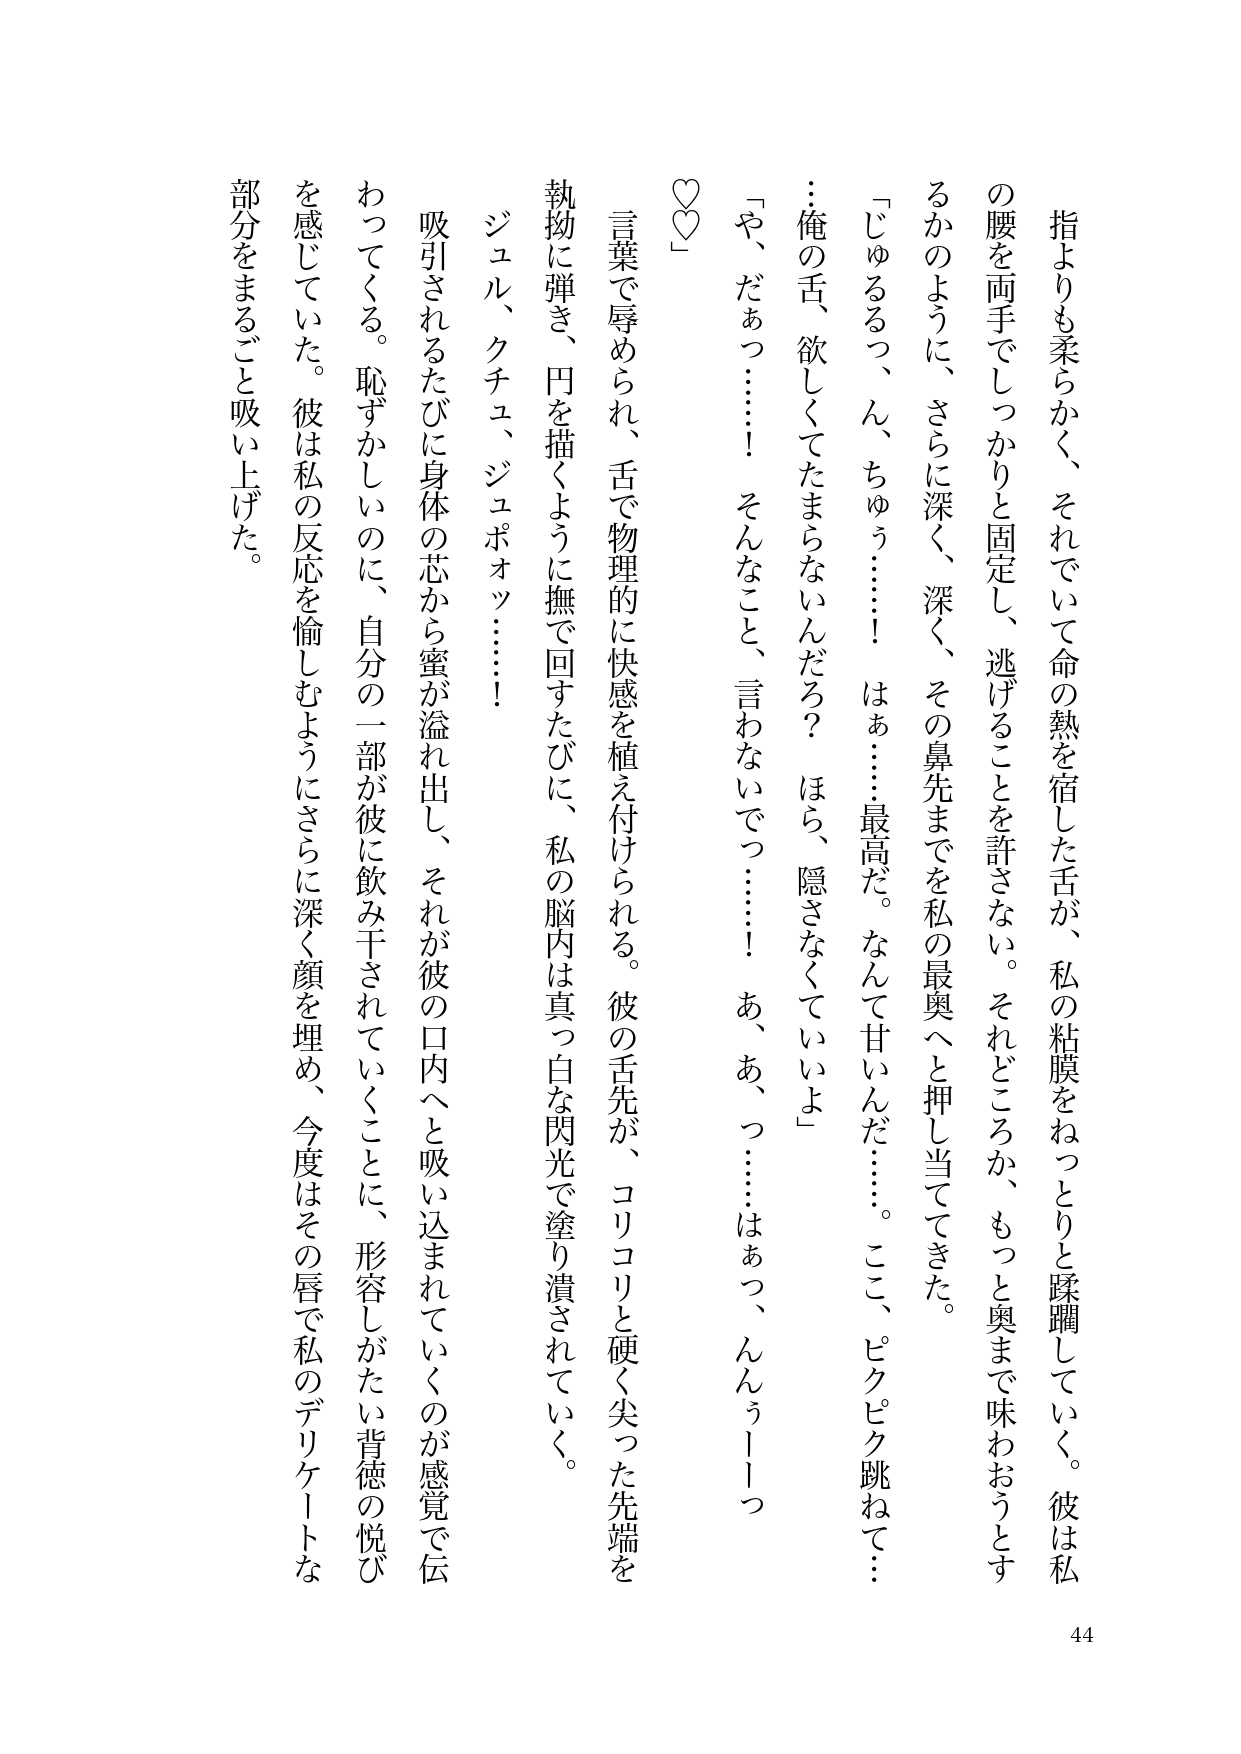 指よりも柔らかく、それでいて命の熱を宿した舌が、私の粘膜をねっとりと蹂躙していく。彼は私
の腰を両手でしっかりと固定し、逃げることを許さない。それどころか、もっと奥まで味わおうとす
るかのように、さらに深く、深く、その鼻先までを私の最奥へと押し当ててきた。
「じゅるるっ、ん、ちゅぅ……！　はぁ……最高だ。なんて甘いんだ……。ここ、ピクピク跳ねて…
…俺の舌、欲しくてたまらないんだろ？　ほら、隠さなくていいよ」
「や、だぁっ……！　そんなこと、言わないでっ……！　あ、あ、っ……はぁっ、んんぅーーっ
♡♡」
　言葉で辱められ、舌で物理的に快感を植え付けられる。彼の舌先が、コリコリと硬く尖った先端を
執拗に弾き、円を描くように撫で回すたびに、私の脳内は真っ白な閃光で塗り潰されていく。
　ジュル、クチュ、ジュポォッ……！
　吸引されるたびに身体の芯から蜜が溢れ出し、それが彼の口内へと吸い込まれていくのが感覚で伝
わってくる。恥ずかしいのに、自分の一部が彼に飲み干されていくことに、形容しがたい背徳の悦び
を感じていた。彼は私の反応を愉しむようにさらに深く顔を埋め、今度はその唇で私のデリケートな
部分をまるごと吸い上げた。
44